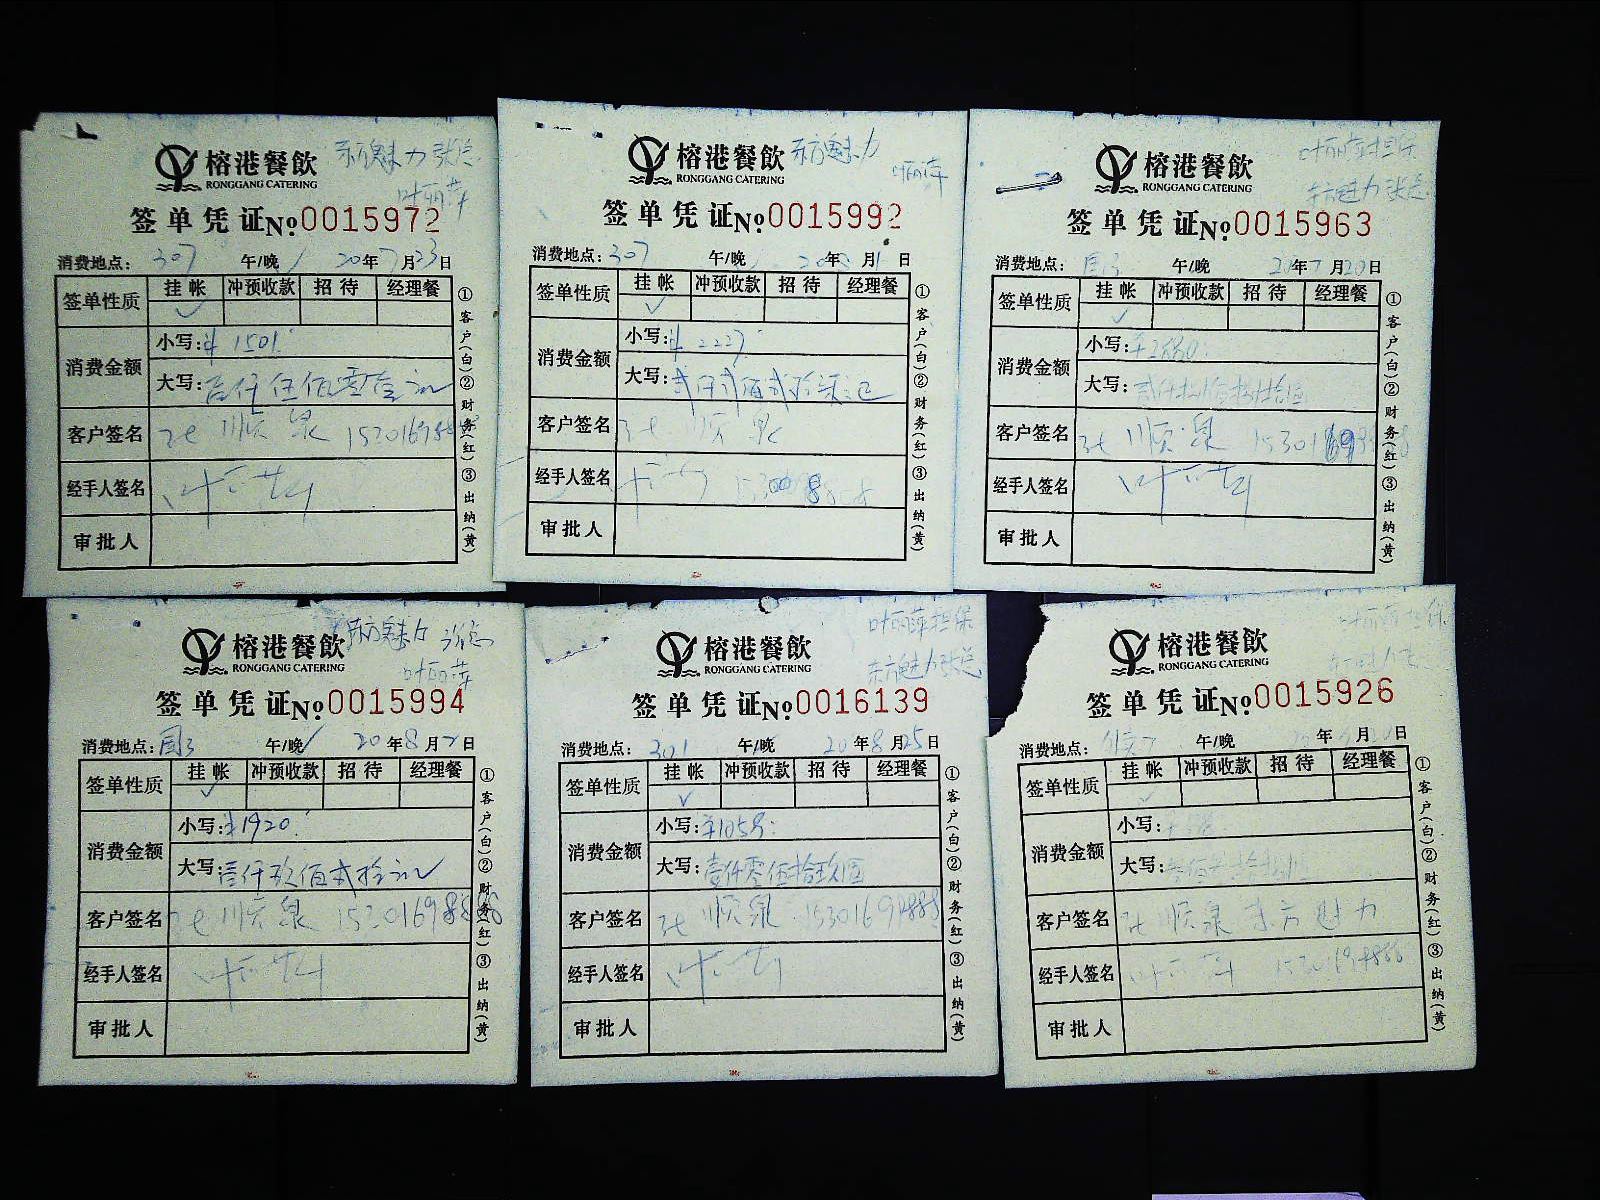 榕港餐飲 东方魅力 张总
RONGGANG CATERING
叶丽萍
签单凭证 No. 0015972
消费地点: 307 午/晚 20年7月23日
签单性质 挂帐 冲预收款 招待 经理餐
✓
消费金额 小写: ¥1501.
大写: 壹仟伍佰零壹元
客户签名 张顺泉
经手人签名
审批人
①客户(白)②财务(红)③出纳(黄)
榕港餐飲 东方魅力
RONGGANG CATERING 叶丽萍
签单凭证 No. 0015992
消费地点: 307 午/晚 20年8月1日
签单性质 挂帐 冲预收款 招待 经理餐
✓
消费金额 小写: ¥2227.
大写: 贰仟贰佰贰拾柒元
客户签名 张顺泉
经手人签名
审批人
①客户(白)②财务(红)③出纳(黄)
叶丽萍担保
榕港餐飲
RONGGANG CATERING 东方魅力张总
签单凭证 No. 0015963
消费地点: 午/晚 20年7月20日
签单性质 挂帐 冲预收款 招待 经理餐
✓
消费金额 小写:
大写:
客户签名 张顺泉
经手人签名
审批人
①客户(白)②财务(红)③出纳(黄)
榕港餐飲 东方魅力
RONGGANG CATERING 叶丽萍
签单凭证 No. 0015994
消费地点: 午/晚 20年8月2日
签单性质 挂帐 冲预收款 招待 经理餐
✓
消费金额 小写: ¥1920.
大写: 壹仟玖佰贰拾元
客户签名 张顺泉
经手人签名
审批人
①客户(白)②财务(红)③出纳(黄)
叶丽萍担保
榕港餐飲
RONGGANG CATERING 东方魅力张总
签单凭证 No. 0016139
消费地点: 301 午/晚 20年8月25日
签单性质 挂帐 冲预收款 招待 经理餐
✓
消费金额 小写: ¥1059.
大写: 壹仟零伍拾玖圆
客户签名 张顺泉
经手人签名
审批人
①客户(白)②财务(红)③出纳(黄)
榕港餐飲
RONGGANG CATERING
签单凭证 No. 0015926
消费地点: 午/晚 年 月 日
签单性质 挂帐 冲预收款 招待 经理餐
✓
消费金额 小写:
大写:
客户签名 张顺泉 东方魅力
经手人签名
审批人
①客户(白)②财务(红)③出纳(黄)